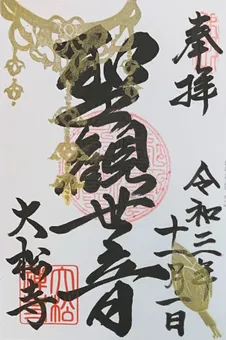 奉拝
聖観世音
令和三年
十一月一日
大松寺